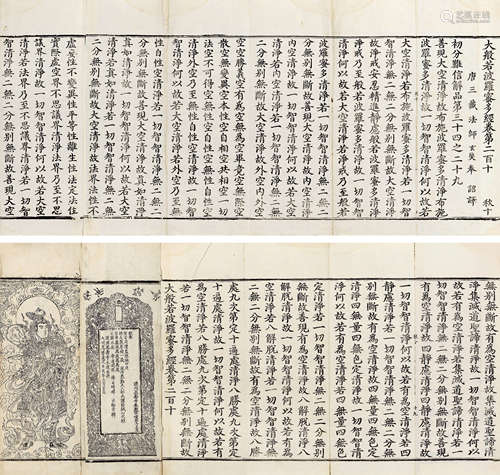 大般若波羅蜜多經卷第二百十 秋十
唐三藏法師玄奘奉 詔譯
初分難信解品第三十四之二十九
善現大空清淨故布施波羅蜜多清淨布施
波羅蜜多清淨故一切智智清淨何以故若
大空清淨若布施波羅蜜多清淨若一切智
智清淨無二無二分無別無斷故大空清淨
故淨戒安忍精進靜慮般若波羅蜜多清淨
淨戒乃至般若波羅蜜多清淨故一切智智
清淨何以故若大空清淨若淨戒乃至般若
波羅蜜多清淨若一切智智清淨無二無二
分無別無斷故善現大空清淨故內空清淨
內空清淨故一切智智清淨何以故若大空
清淨若內空清淨若一切智智清淨無二無
二分無別無斷故大空清淨故外空內外空
空空勝義空有為空無為空畢竟空無際空
散空無變異空本性空自相空共相空一切
法空不可得空無性空自性空無性自性空
清淨外空乃至無性自性空清淨故一切智
智清淨何以故若大空清淨若外空乃至無
性自性空清淨若一切智智清淨無二無二
分無別無斷故善現大空清淨故真如清淨
真如清淨故一切智智清淨何以故若大空
清淨若真如清淨若一切智智清淨無二無
二分無別無斷故大空清淨故法界法性不
虛妄性不變異性平等性離生性法定法住
實際虛空界不思議界清淨法界乃至不思
議界清淨故一切智智清淨何以故若大空
清淨若法界乃至不思議界清淨若一切智
智清淨無二無二分無別無斷故善現大空
無別無斷故有為空清淨故集滅道聖諦清
淨集滅道聖諦清淨故一切智智清淨何以
故若有為空清淨若集滅道聖諦清淨若一
切智智清淨無二無二分無別無斷故善現
有為空清淨故四靜慮清淨四靜慮清淨故
一切智智清淨何以故若有為空清淨若四
靜慮清淨若一切智智清淨無二無二分無
別無斷故有為空清淨故四無量四無色定
清淨四無量四無色定清淨故一切智智清
淨何以故若有為空清淨若四無量四無色
定清淨若一切智智清淨無二無二分無別
無斷故善現有為空清淨故八解脫清淨八
解脫清淨故一切智智清淨何以故若有為
空清淨若八解脫清淨若一切智智清淨無
二無二分無別無斷故有為空清淨故八勝
處九次第定十遍處清淨八勝處九次第定
十遍處清淨故一切智智清淨何以故若有
為空清淨若八勝處九次第定十遍處清淨
若一切智智清淨無二無二分無別無斷故
大般若波羅蜜多經卷第二百十